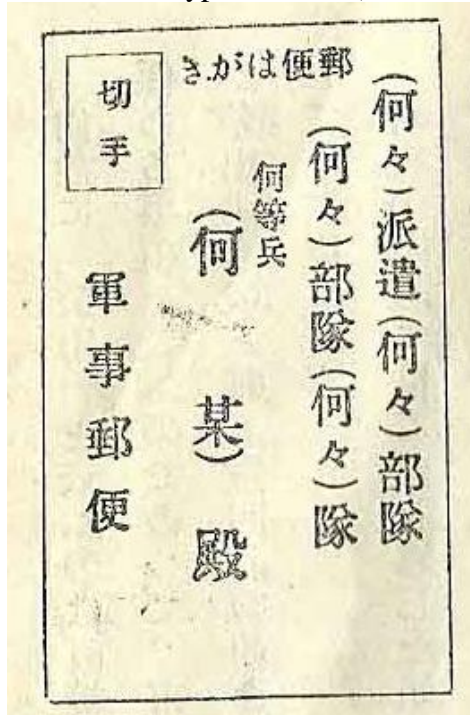 郵便はがき
(何々)派遣(何々)部隊
(何々)部隊(何々)隊
何等兵
(何 某) 殿
切手
軍事郵便